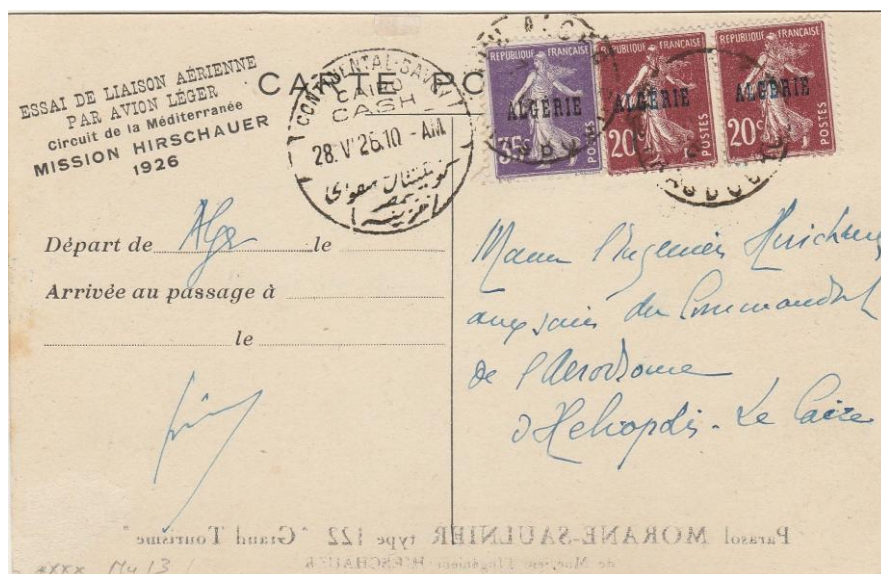 ESSAI DE LIAISON AÉRIENNE
PAR AVION LÉGER
Circuit de la Méditerranée
MISSION HIRSCHAUER
1926
CARTE PO
CONTINENTAL-SAVOY
CAIRO
CASH
28.V 26.10 - AM
REPUBLIQUE FRANÇAISE
ALGÉRIE
35c
POSTES
REPUBLIQUE FRANÇAISE
ALGÉRIE
20c
POSTES
REPUBLIQUE FRANÇAISE
ALGÉRIE
20c
POSTES
Départ de Alger le
Arrivée au passage à
le
l'Ingénieur Hirschauer
aux soins du Commandant
de l'Aérodrome
d'Héliopolis - Le Caire
Parasol MORANE-SAULNIER type 122 "Grand Tourisme"
de Monsieur l'Ingénieur HIRSCHAUER